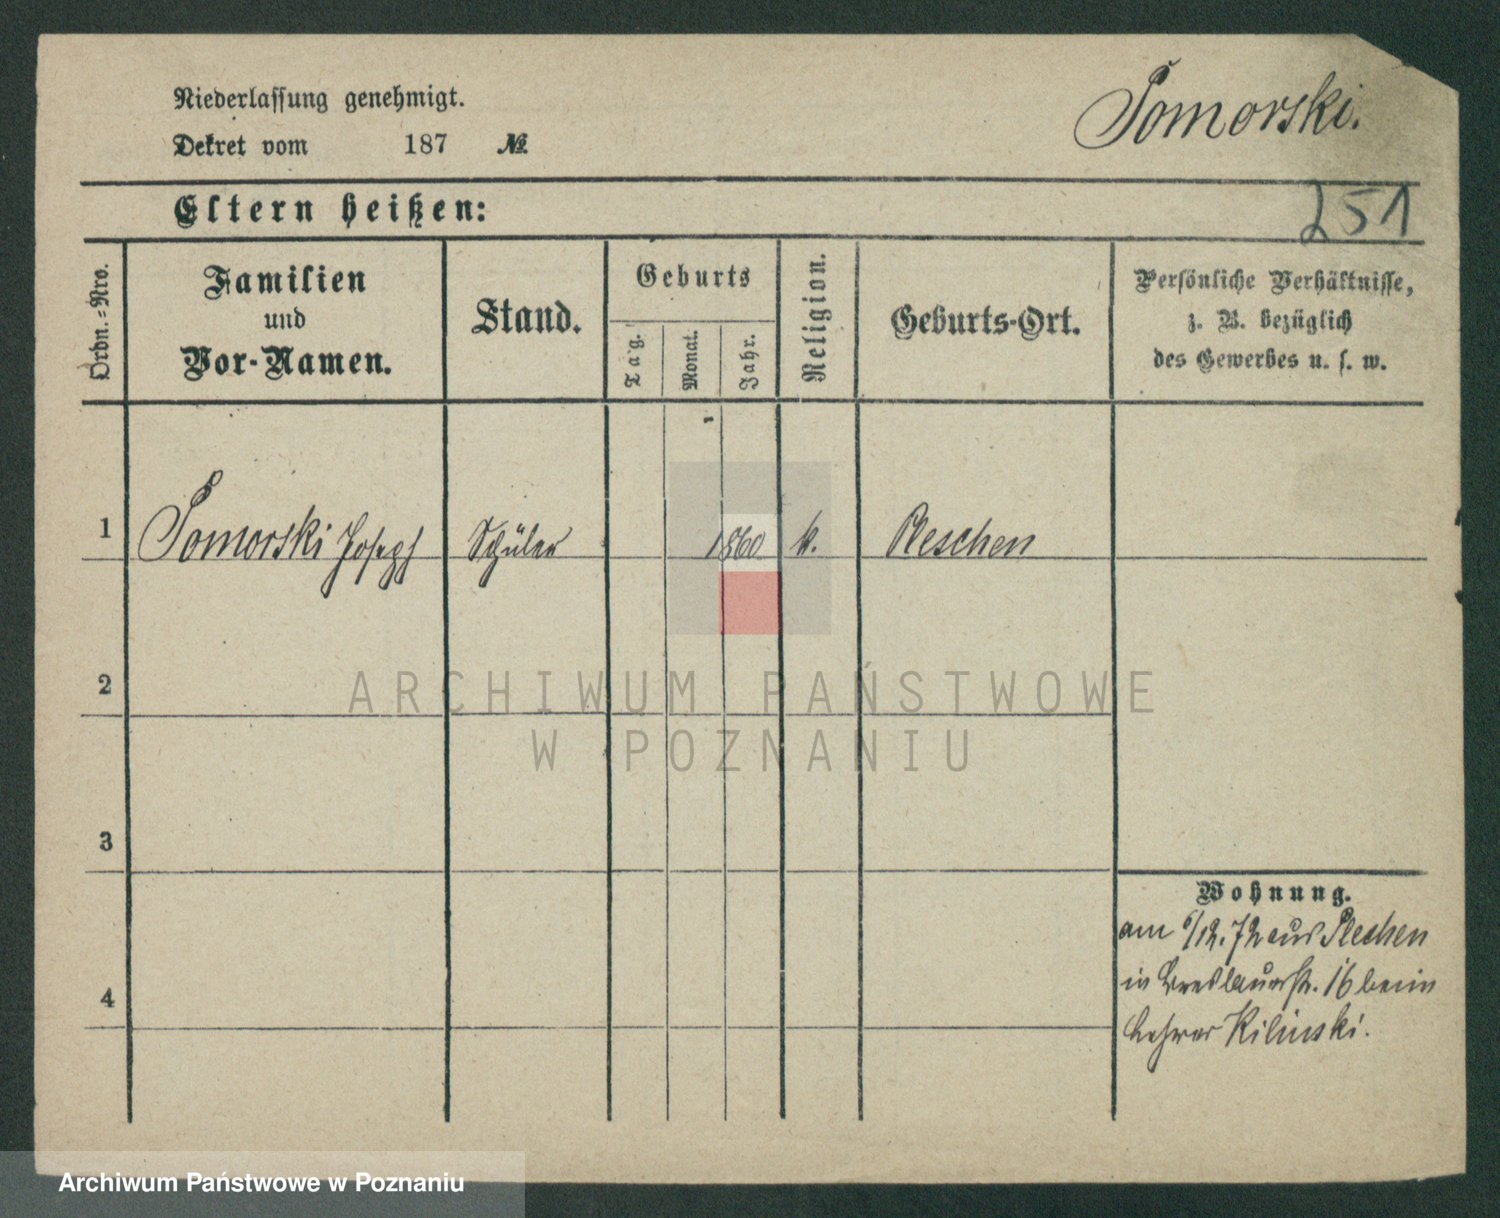 Niederlassung genehmigt.
Pomorski.
Dekret vom 187 №
Eltern heißen:
251
Ordn.-Nro.
Familien
und
Vor-Namen.
Stand.
Geburts
Tag.
Monat.
Jahr.
Religion.
Geburts-Ort.
Persönliche Verhältnisse,
z. B. bezüglich
des Gewerbes u. s. w.
1 Pomorski Joseph Schüler 1860 k. Pleschen
2
ARCHIWUM PAŃSTWOWE
W POZNANIU
3
Wohnung.
am 6/12.72 aus Pleschen
4
in Breslauerstr. 16 beim
Lehrer Kilinski.
Archiwum Państwowe w Poznaniu